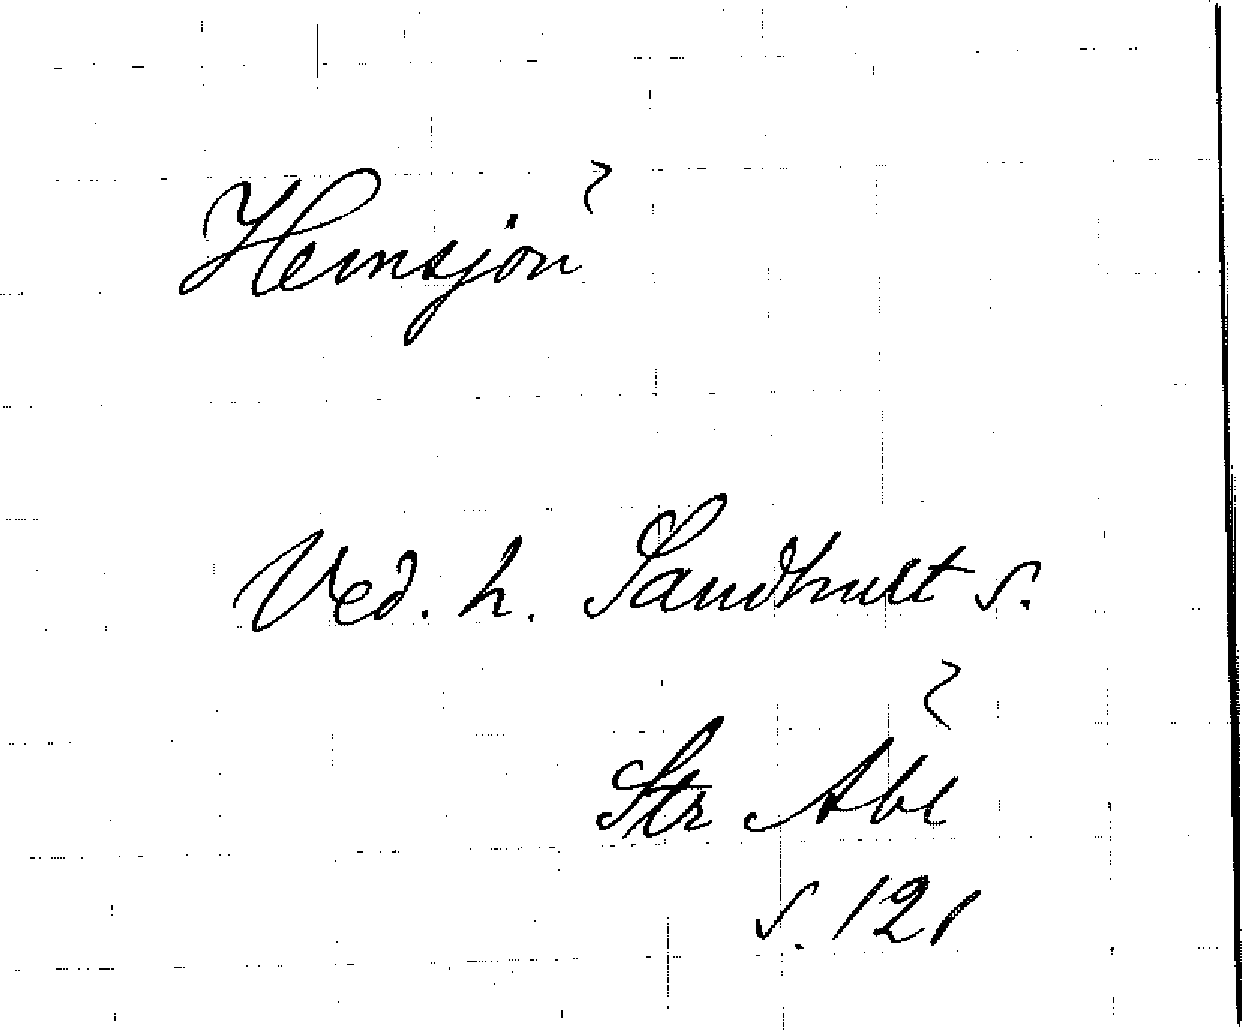 Hemsjön
Ved. h. Sandhult s.
Str Abl
s. 121